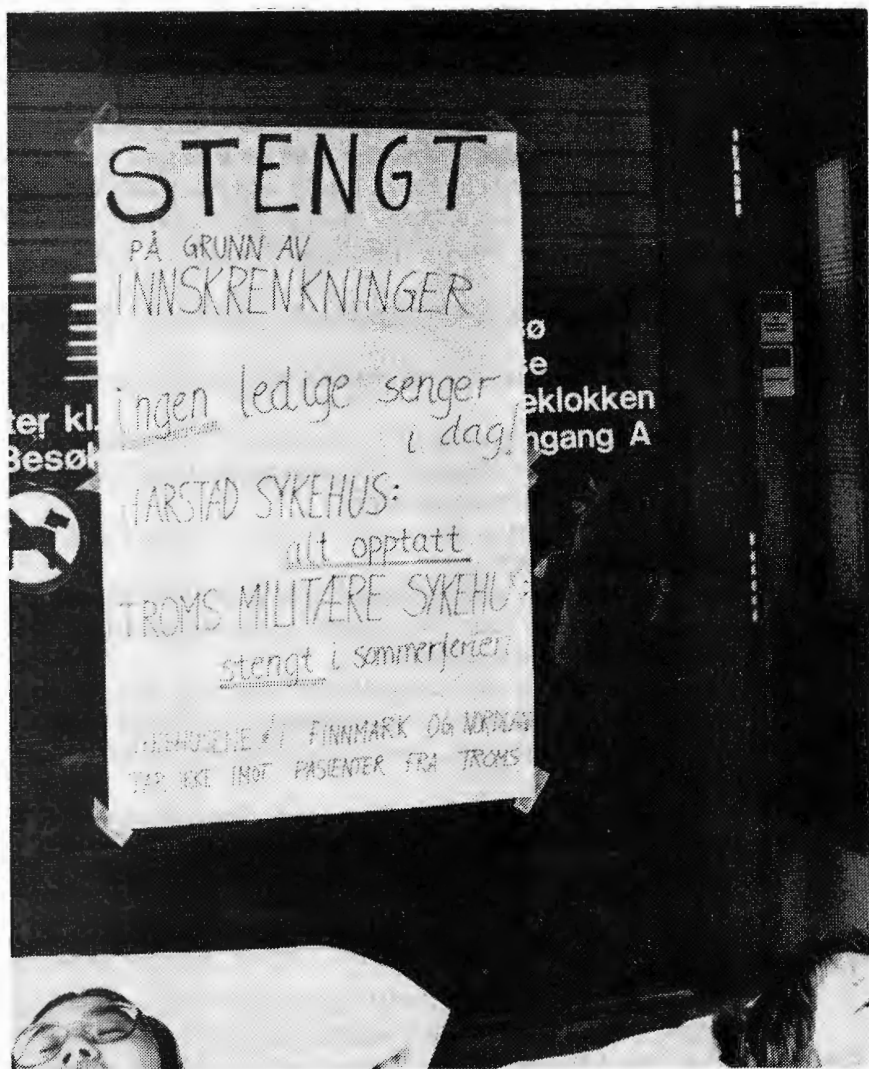 STENGT
PÅ GRUNN AV
INNSKRENKNINGER
ingen ledige senger
i dag!
HARSTAD SYKEHUS:
alt opptatt
TROMS MILITÆRE SYKEHUS:
stengt i sommerferien
I FINNMARK OG
TAR IKKE IMOT PASIENTER FRA TROMS
ø
se
ter kl. eklokken
Besøk ngang A